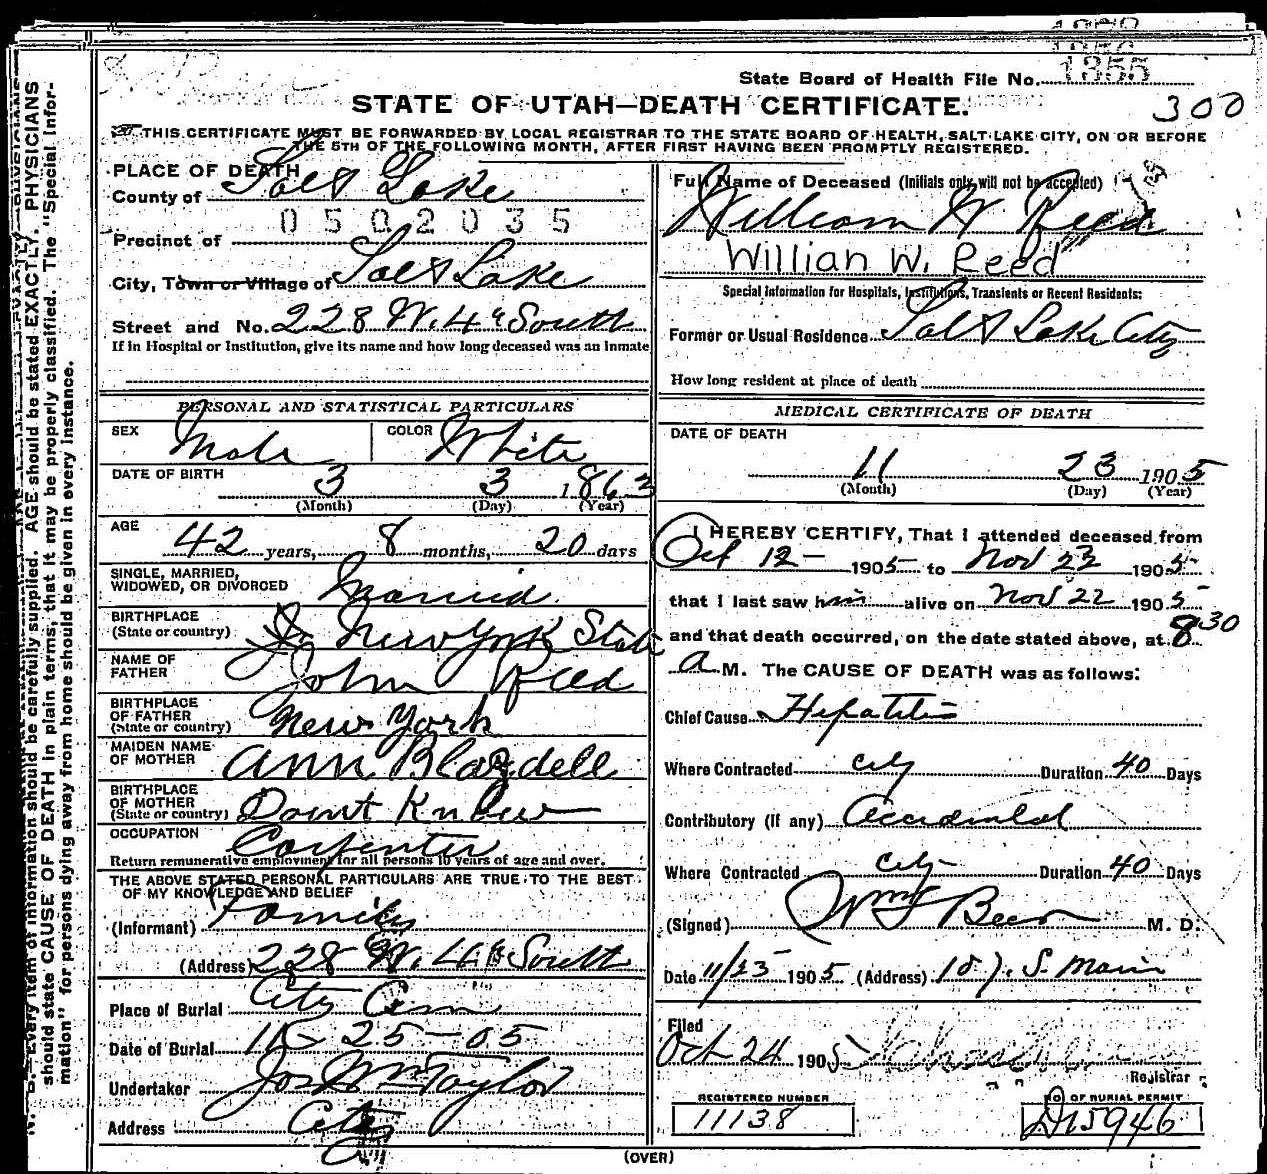 1355
State Board of Health File No.
STATE OF UTAH—DEATH CERTIFICATE.
300
THIS CERTIFICATE MUST BE FORWARDED BY LOCAL REGISTRAR TO THE STATE BOARD OF HEALTH, SALT LAKE CITY, ON OR BEFORE
THE 5TH OF THE FOLLOWING MONTH, AFTER FIRST HAVING BEEN PROMPTLY REGISTERED.
PLACE OF DEATH
County of Salt Lake
0502035
Precinct of
City, Town or Village of Salt Lake
Street and No. 228 W. 4th South
If in Hospital or Institution, give its name and how long deceased was an inmate
Full Name of Deceased (Initials only will not be accepted)
William W Reed
Willian W. Reed
Special Information for Hospitals, Institutions, Transients or Recent Residents:
Former or Usual Residence Salt Lake City
How long resident at place of death
PERSONAL AND STATISTICAL PARTICULARS
SEX Male COLOR White
DATE OF BIRTH 3 3 1863
(Month) (Day) (Year)
AGE 42 years, 8 months, 20 days
SINGLE, MARRIED,
WIDOWED, OR DIVORCED Married
BIRTHPLACE
(State or country) New York State
NAME OF
FATHER John Reed
BIRTHPLACE
OF FATHER
(State or country) New York
MAIDEN NAME
OF MOTHER Ann Blazdell
BIRTHPLACE
OF MOTHER
(State or country) Dount Know
OCCUPATION Carpenter
Return remunerative employment for all persons 10 years of age and over.
THE ABOVE STATED PERSONAL PARTICULARS ARE TRUE TO THE BEST
OF MY KNOWLEDGE AND BELIEF
(Informant) Family
(Address) 228 W. 4th South
Place of Burial City Cem
Date of Burial 11-25-05
Undertaker Jos Wm Taylor
Address City
MEDICAL CERTIFICATE OF DEATH
DATE OF DEATH
11 23 1905
(Month) (Day) (Year)
I HEREBY CERTIFY, That I attended deceased from
Oct 12 - 1905 to Nov 23 1905
that I last saw him alive on Nov 22 1905
and that death occurred, on the date stated above, at 8 30
a M. The CAUSE OF DEATH was as follows:
Chief Cause Hepatitis
Where Contracted city Duration 40 Days
Contributory (if any) Accidental
Where Contracted city Duration 40 Days
(Signed) Wm F Beer M. D.
Date 11/23 1905 (Address) 187 S. Main
Filed
Oct 24 1905
Registrar
REGISTERED NUMBER
11138
NO OF BURIAL PERMIT
D15946
(OVER)
N. B.—Every item of information should be carefully supplied. AGE should be stated EXACTLY. PHYSICIANS
should state CAUSE OF DEATH in plain terms, that it may be properly classified. The "Special Infor-
mation" for persons dying away from home should be given in every instance.